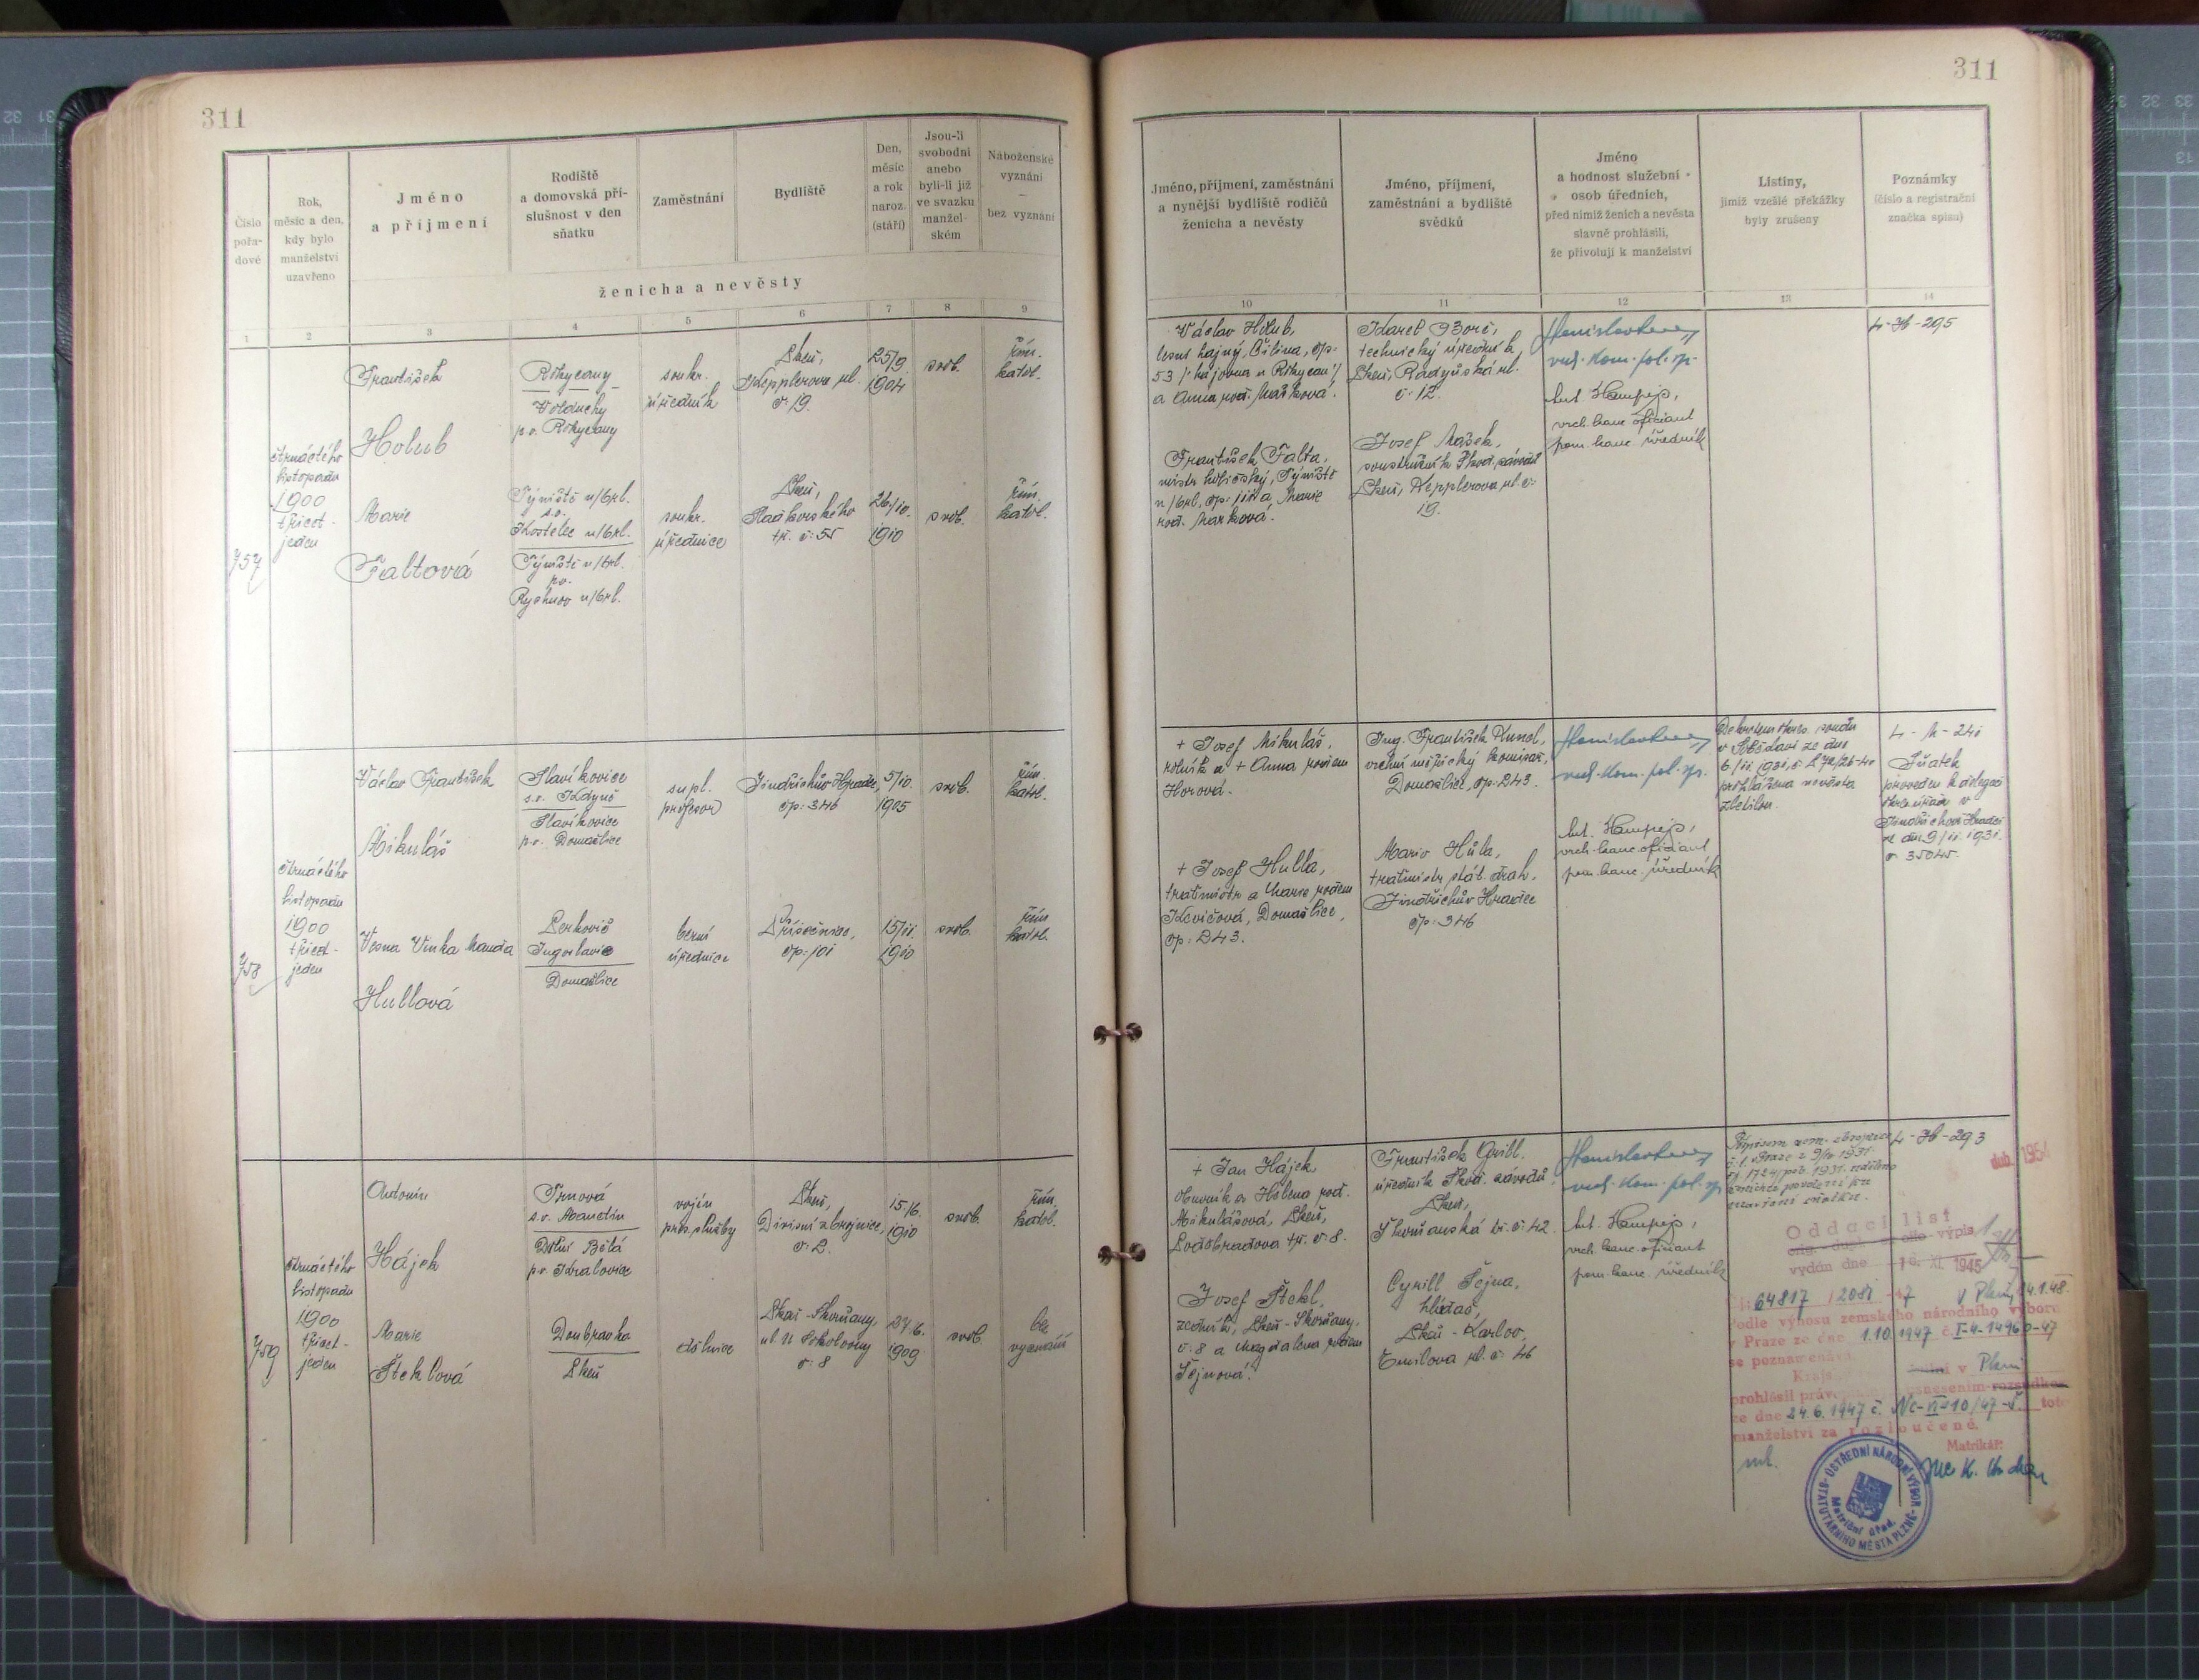 311
Číslo
pořa-
dové
Rok,
měsíc a den,
kdy bylo
manželství
uzavřeno
Jméno
a příjmení
Rodiště
a domovská pří-
slušnost v den
sňatku
Zaměstnání
Bydliště
Den,
měsíc
a rok
naroz.
(stáří)
Jsou-li
svobodni
anebo
byli-li již
ve svazku
manžel-
ském
Náboženské
vyznání
—
bez vyznání
ženicha a nevěsty
1 2 3 4 5 6 7 8 9
757
čtrnáctého
listopadu
1900
třicet-
jeden
František
Holub
Rokycany
Volduchy
p.o. Rokycany
soukr.
úředník
Plzeň,
Kepplerova ul.
č. 19.
25/9.
1904
svob.
řím.
katol.
Marie
Faltová
Týniště n/Orl.
s.o.
Kostelec n/Orl.
Týniště n/Orl.
p.o.
Rychnov n/Orl.
soukr.
úřednice
Plzeň,
tř. č: 55
26/10.
1910
svob.
řím.
katol.
758
čtrnáctého
listopadu
1900
třicet-
jeden
Václav František
Mikuláš
Slavíkovice
s.o. Kdyně
Slavíkovice
p.o. Domažlice
supl.
profesor
Jindřichův Hradec,
čp: 346
5/10.
1905
svob.
řím.
katol.
Vesna Vinka Manda
Hullová
Perković
Jugoslavie
Domažlice
berní
úřednice
čp: 101
15/11.
1910
svob.
řím.
katol.
759
čtrnáctého
listopadu
1900
třicet-
jeden
Antonín
Hájek
Trnová
s.o. Manětín
Dolní Bělá
p.o. Kralovice
vojín
pres. služby
Plzeň,
Divisní zbrojnice,
č. 2.
15./6.
1910
svob.
řím.
katol.
Marie
Šteklová
Doubravka
Plzeň
dělnice
Plzeň-Skvrňany,
ul. U Sokolovny
č: 8
27./6.
1909
svob.
bez
vyznání
311
Jméno, příjmení, zaměstnání
a nynější bydliště rodičů
ženicha a nevěsty
Jméno, příjmení,
zaměstnání a bydliště
svědků
Jméno
a hodnost služební
osob úředních,
před nimiž ženich a nevěsta
slavně prohlásili,
že přivolují k manželství
Listiny,
jimiž vzešlé překážky
byly zrušeny
Poznámky
(číslo a registrační
značka spisu)
10 11 12 13 14
Václav Holub,
lesní hajný, čp:
53 /: hájovna u Rokycan :/
a Anna roz. Mašková.
František Falta,
mistr holičský, Týniště
n/Orl., čp: 111 a Marie
roz. Marková.
Karel
technický úředník,
Plzeň, Radyňská ul.
č: 12.
Josef Mašek,
soustružník Škod. závodů
Plzeň, Kepplerova ul. č:
19.
vrch. kom. pol. spr.
Ant. Hampejs,
vrch. kanc. oficiant
pom. kanc. úředník
+ Josef Mikuláš,
rolník a + Anna rozem
Horová.
+ Josef Hulla,
traťmistr a Marie rozem
Domažlice,
čp: 243.
Ing. František
vrchní komisař,
Domažlice, čp: 243.
Mario Hůla,
traťmistr stát. drah.
Jindřichův Hradec
čp: 346
vrch. kom. pol. spr.
Ant. Hampejs,
vrch. kanc. oficiant
pom. kanc. úředník
Dekretem soudu
ze dne
6/11. 1931,
prohlášena nevěsta
zletilou.
Sňatek
proveden k delegaci
okres. úřadu v
Jindřichově Hradci
ze dne 9/11. 1931.
č 35045.
+ Jan Hájek,
obuvník a Helena roz.
Mikulášová, Plzeň,
Poděbradova tř. č. 8.
Josef Štekl,
zedník, Plzeň-Skvrňany,
č: 8 a Magdalena rozem
Šejnová.
František Grill,
úředník Škod. závodů
Plzeň,
Skvrňanská tř. č: 42.
Cyrill Šejna,
hlídač,
Plzeň-Karlov,
Emilova ul. č: 46
vrch. kom. pol. spr.
Ant. Hampejs,
vrch. kanc. oficiant
pom. kanc. úředník
Oddací list
výpis
vydán dne 16. XI. 1945
V Plzni, 14.1.48.
Podle výnosu zemského národního výboru
v Praze ze dne 1.10.1947 č.
se poznamenává:
v Plzni
prohlásil usnesením rozsudkem
ze dne 24.6.1947 č. toto
manželství za rozloučené.
Matrikář:
ÚSTŘEDNÍ NÁRODNÍ VÝBOR
STATUTÁRNÍHO MĚSTA PLZNĚ
Matriční úřad.